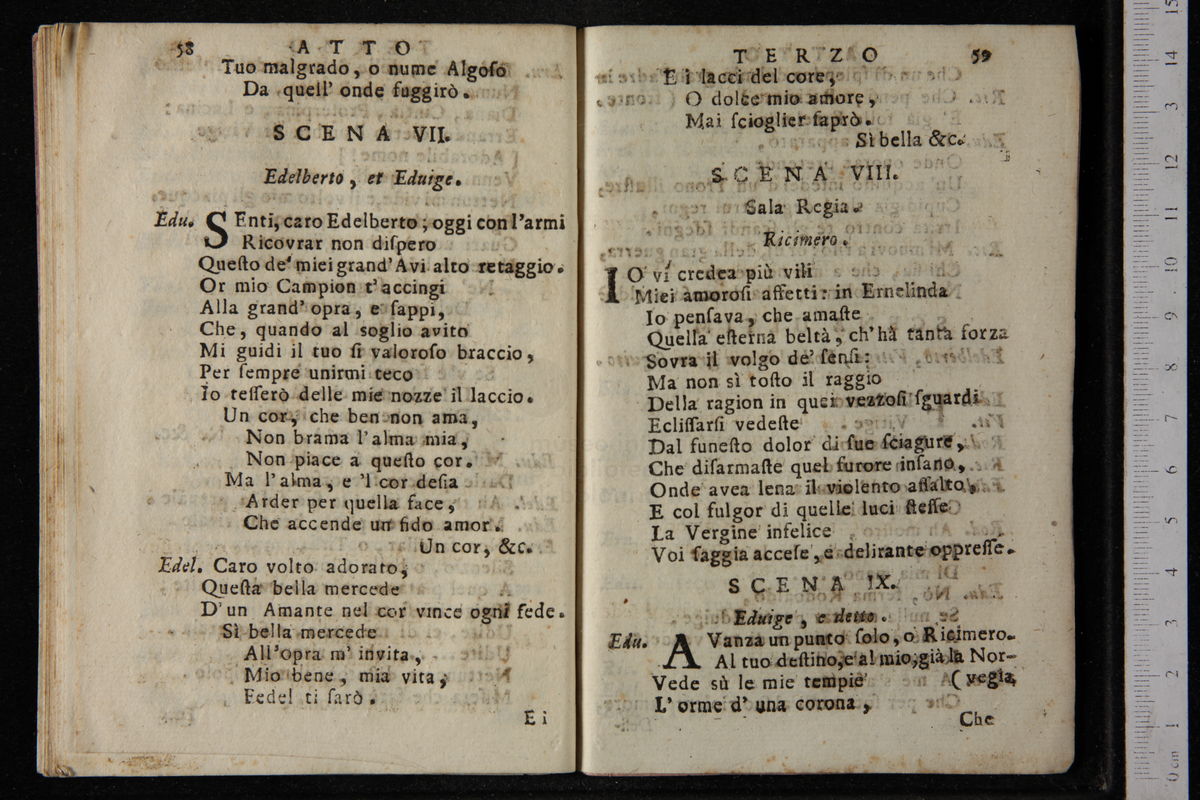 58
ATTO
Tuo malgrado, o nume Algoſo
Da quell' onde fuggirò.
SCENA VII.
Edelberto, et Eduige.
Edu. SEnti, caro Edelberto; oggi con l'armi
Ricovrar non diſpero
Queſto de' miei grand' Avi alto retaggio.
Or mio Campion t'accingi
Alla grand' opra, e ſappi,
Che, quando al ſoglio avito
Mi guidi il tuo ſi valoroſo braccio,
Per ſempre unirmi teco
Io teſſerò delle mie nozze il laccio.
Un cor, che ben non ama,
Non brama l'alma mia,
Non piace a queſto cor.
Ma l'alma, e 'l cor deſia
Arder per quella face,
Che accende un fido amor.
Un cor, &c.
Edel. Caro volto adorato,
Queſta bella mercede
D'un Amante nel cor vince ogni fede.
Sì bella mercede
All'opra m' invita,
Mio bene, mia vita,
Fedel ti ſarò.
E i
TERZO
59
E i lacci del core,
O dolce mio amore,
Mai ſcioglier ſaprò.
Sì bella &c.
SCENA VIII.
Sala Regia.
Ricimero.
IO vi credea più vili
Miei amoroſi affetti: in Ernelinda
Io penſava, che amaſte
Quella eſterna beltà, ch'hà tanta forza
Sovra il volgo de' ſenſi:
Ma non sì toſto il raggio
Della ragion in quei vezzoſi ſguardi
Ecliſſarſi vedeſte
Dal funeſto dolor di ſue ſciagure,
Che diſarmaſte quel furore inſano,
Onde avea lena il violento aſſalto,
E col fulgor di quelle luci ſteſſe
La Vergine infelice
Voi ſaggia acceſe, e delirante oppreſſe.
SCENA IX.
Eduige, e detto.
Edu. AVanza un punto ſolo, o Ricimero.
Al tuo deſtino, e al mio; già la Nor-
Vede sù le mie tempie (vegia
L' orme d' una corona,
Che